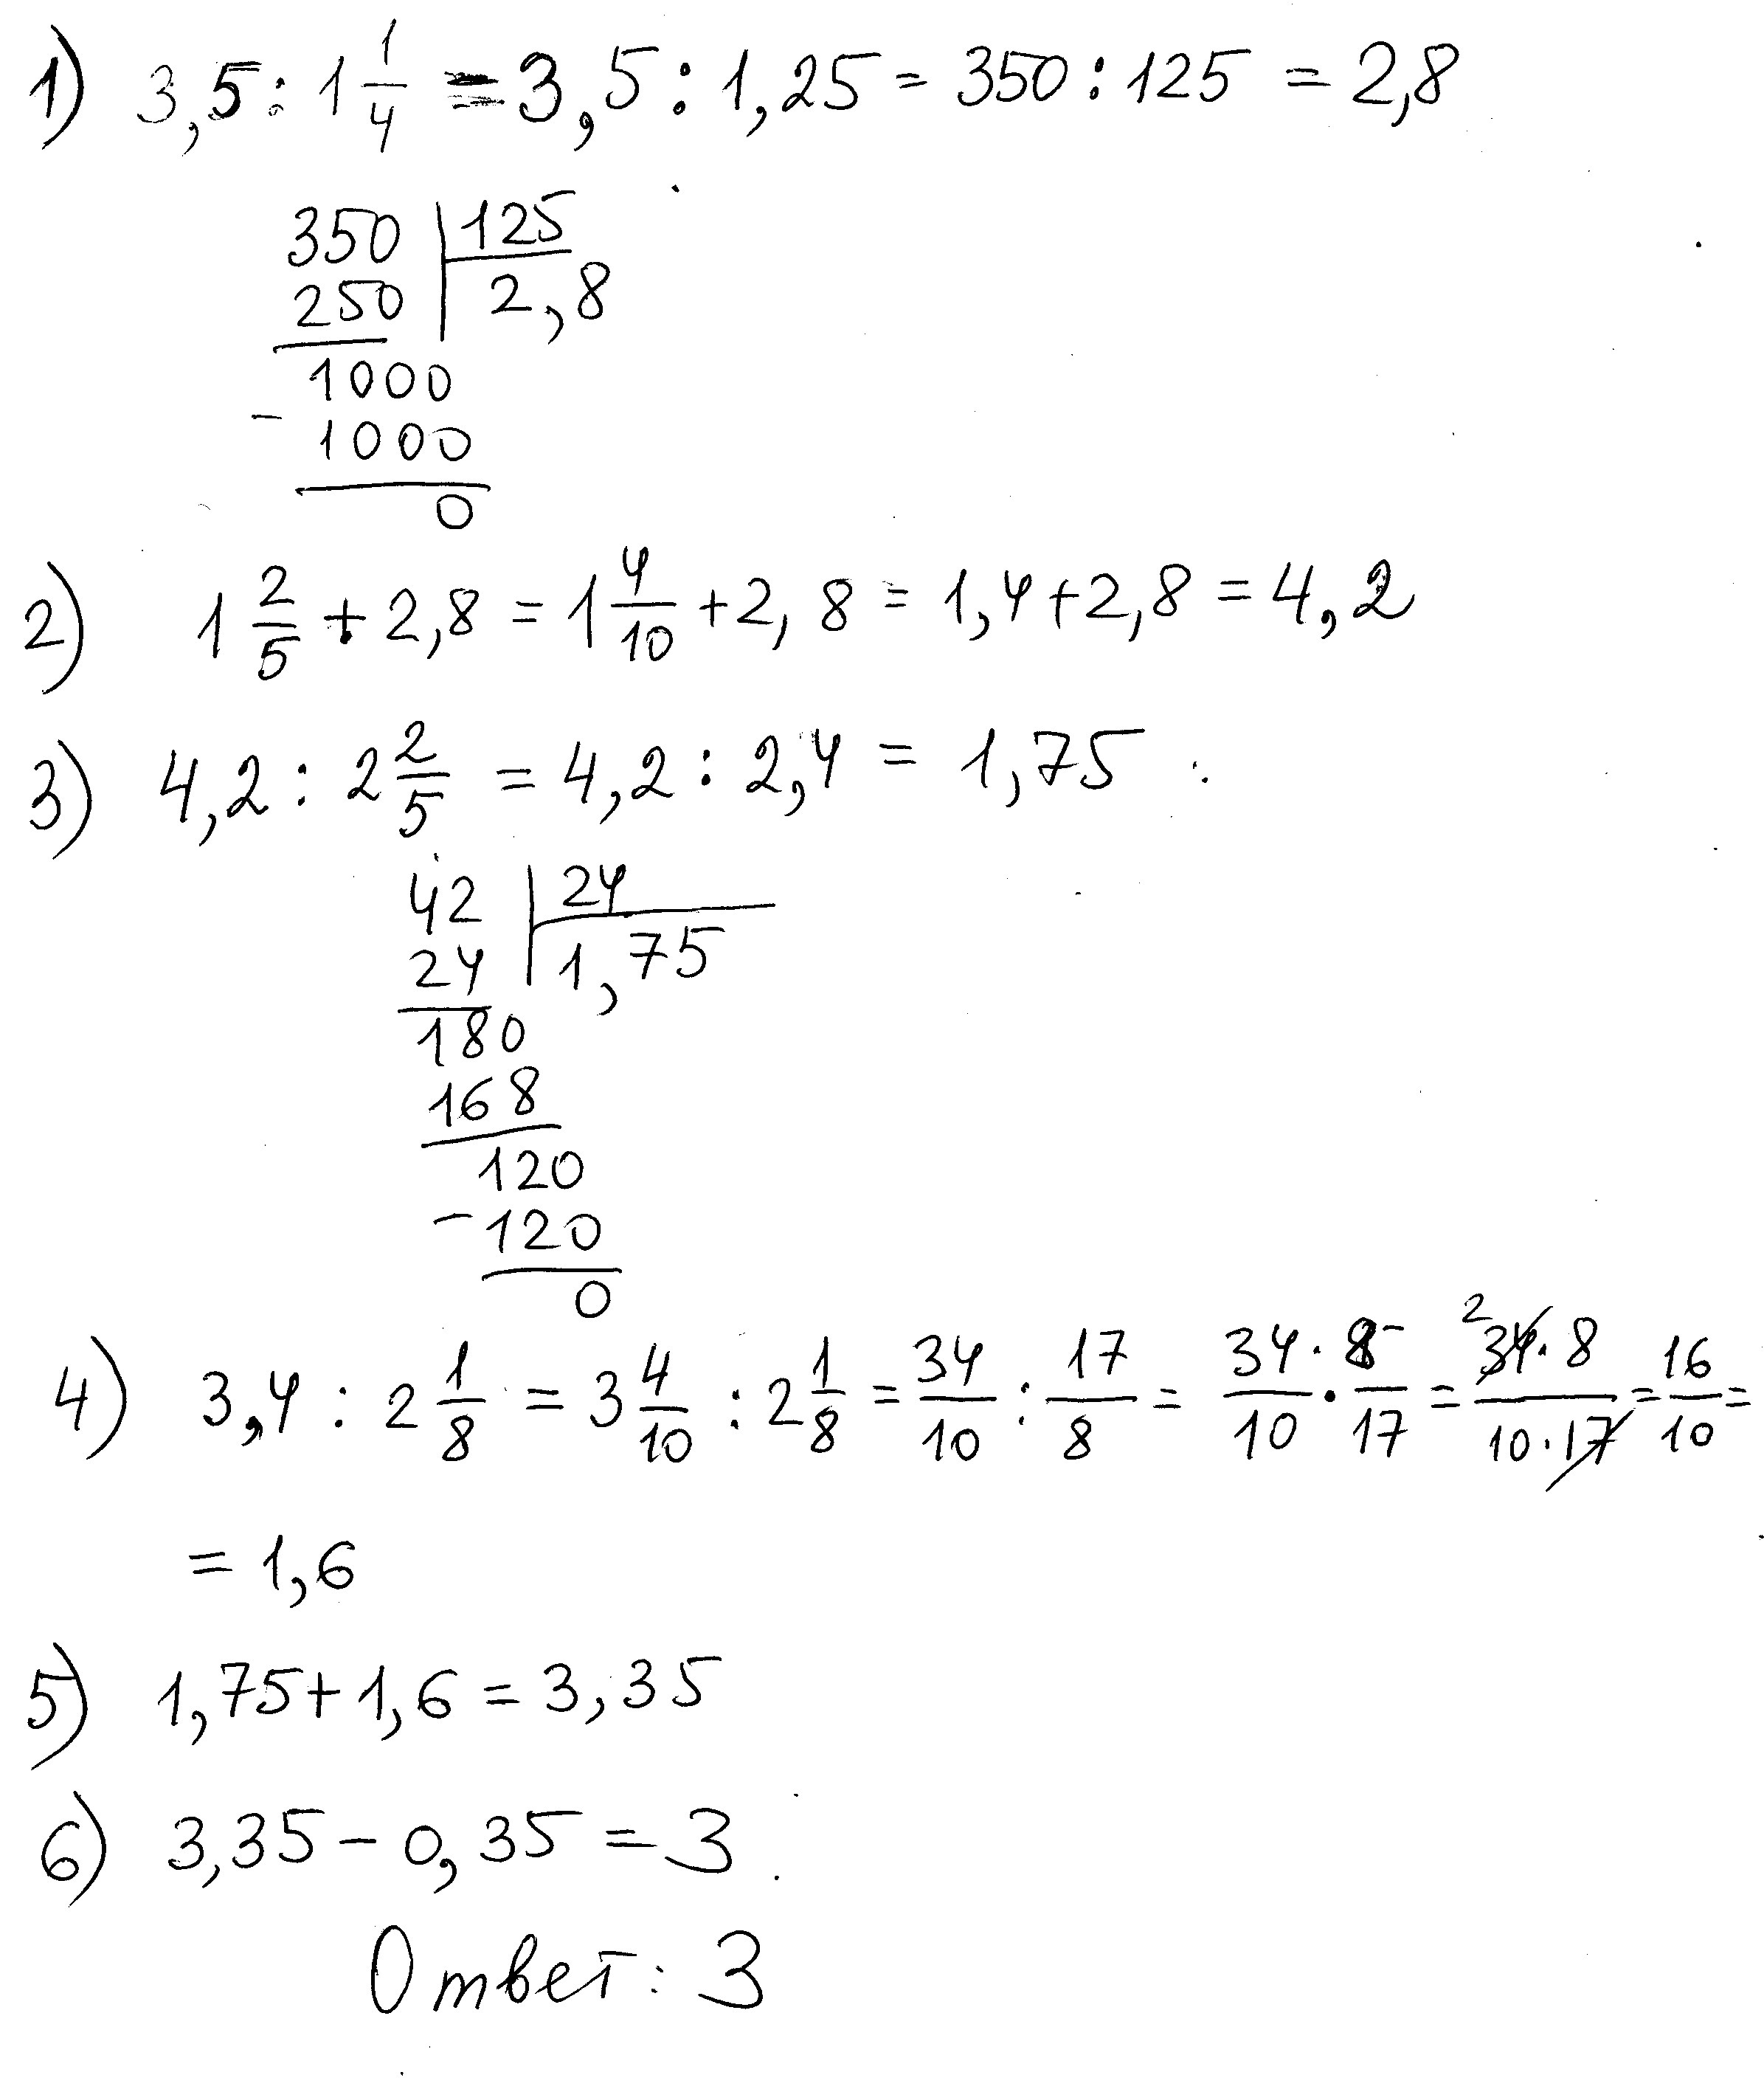 1) 3,5 : 1 1/4 = 3,5 : 1,25 = 350 : 125 = 2,8
350 | 125
250 | 2,8
1000
- 1000
0
2) 1 2/5 + 2,8 = 1 4/10 + 2,8 = 1,4 + 2,8 = 4,2
3) 4,2 : 2 2/5 = 4,2 : 2,4 = 1,75
42 | 24
24 | 1,75
180
168
120
- 120
0
4) 3,4 : 2 1/8 = 3 4/10 : 2 1/8 = 34/10 : 17/8 = 34/10 · 8/17 = 2 34·8/10·17 = 16/10 =
= 1,6
5) 1,75 + 1,6 = 3,35
6) 3,35 - 0,35 = 3.
Ответ: 3